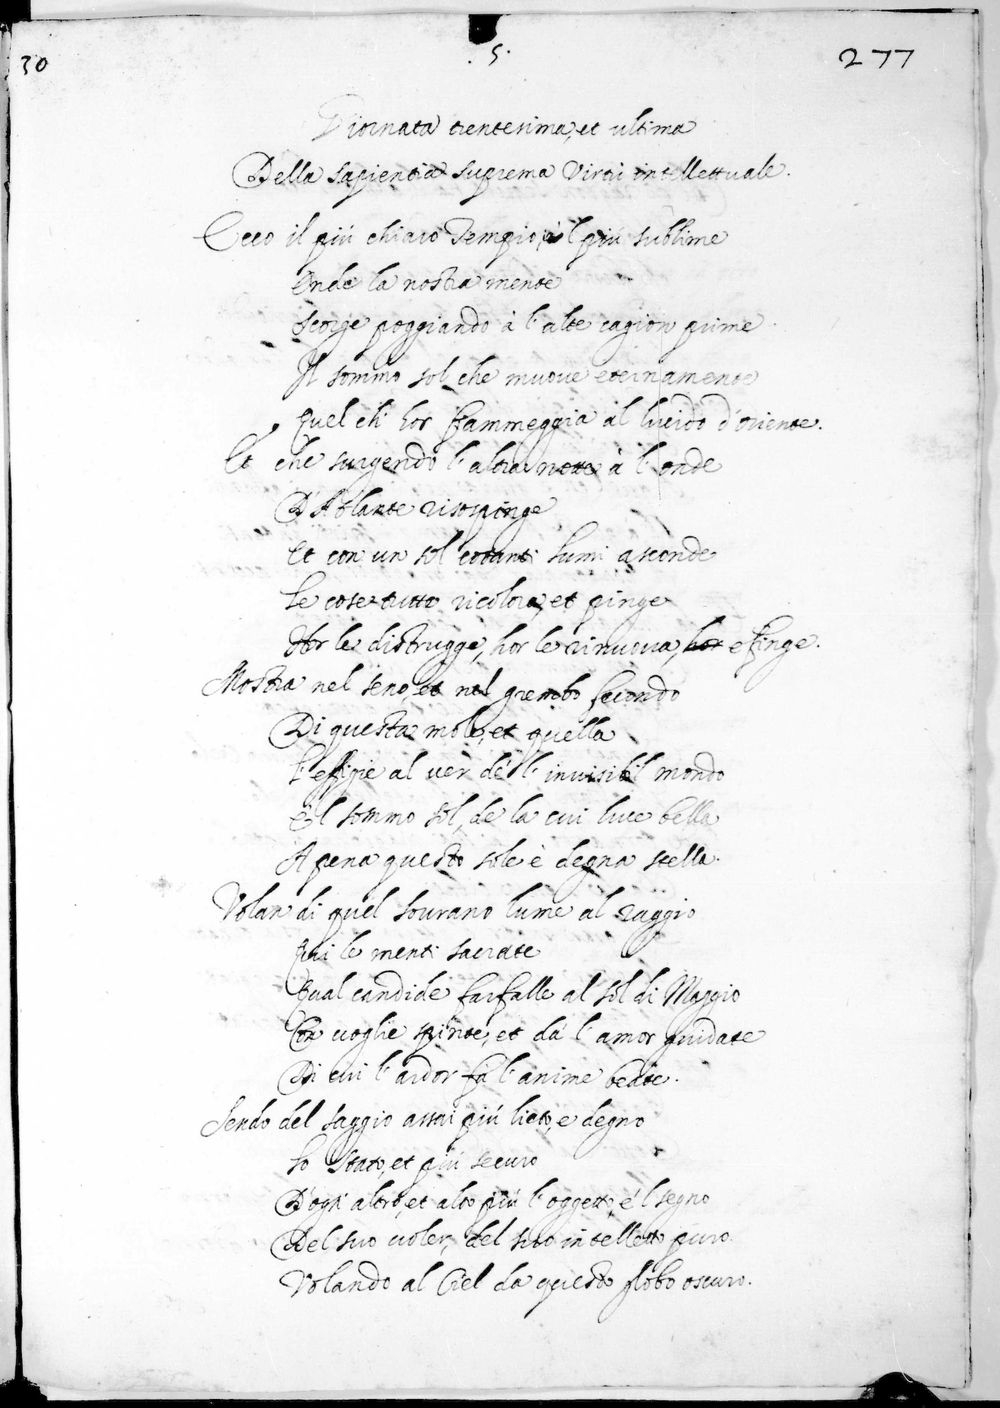 30 .5. 277
Giornata trentesima, et ultima
Della sapientia suprema Virtù intellettuale.
Ecco il più chiaro Tempio, e 'l più sublime
Onde la nostra mente
Scorge poggiando à l'alte cagion prime
Il sommo sol che muove eternamente
Quel ch'hor fiammeggia al lucido d'Oriente.
Et che surgendo l'altra notte à l'onde
D'Atlante risospinge
Et con un sol cotanti lumi asconde
Le cose tutte ricolora, et pinge
Hor le distrugge, hor le rinnova, hor effinge.
Mostra nel seno et nel grembo fecondo
Di questa mole, et quella
L'effigie al ver de l'invisibil mondo
E 'l sommo sol, de la cui luce bella
A pena questo sole è degna stella.
Volan di quel sovrano lume al raggio
Qui le menti sacrate
Qual candide farfalle al sol di Maggio
Con voglie spinte, et da l'amor guidate
Di cui l'ardor fà l'anime beate.
Sendo del saggio assai più lieto, e degno
Lo stato, et più securo
D'ogn'altro, et alto più l'oggetto, e 'l segno
Del suo voler, del suo intelletto puro.
Volando al Ciel da questo globo oscuro.